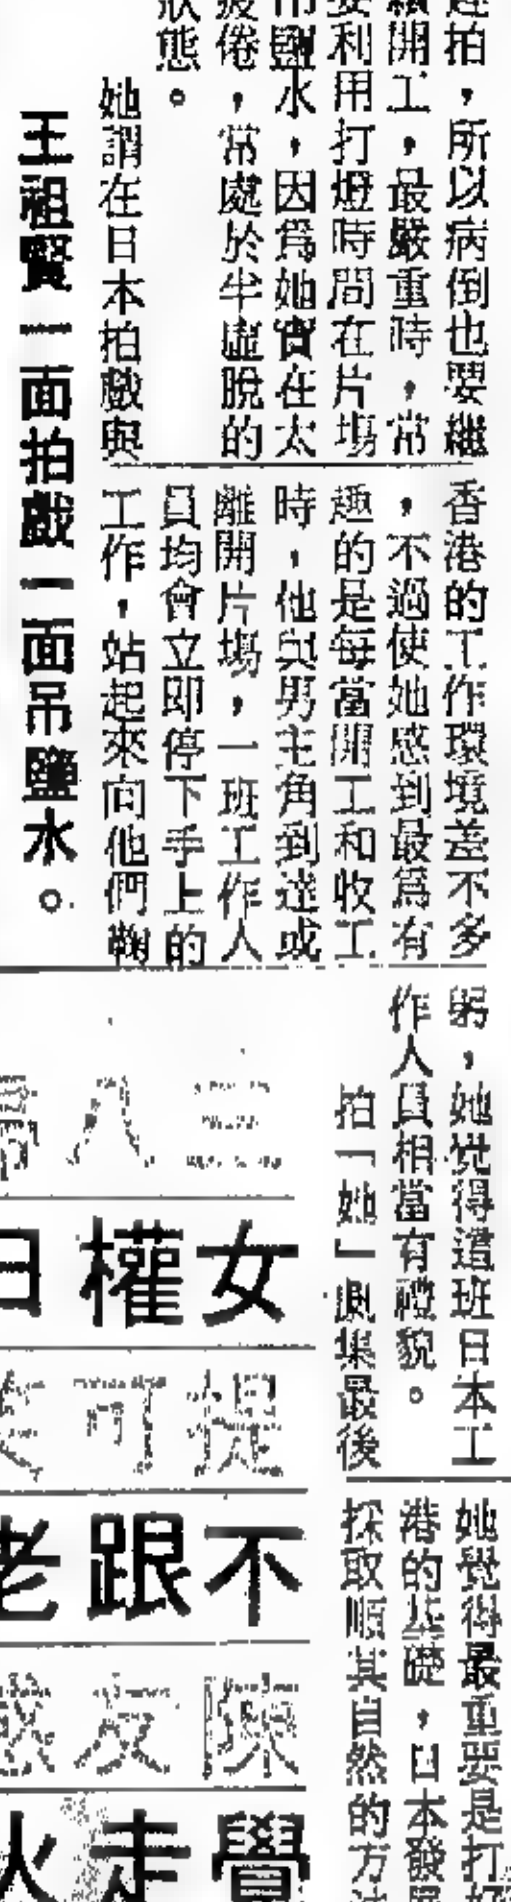 拍，所以病倒也要繼
續開工，最嚴重時，常
要利用打燈時間在片塲
吊鹽水，因爲她實在太
疲倦，常處於半虛脫的
狀態。
她謂在日本拍戲與
王祖賢一面拍戲一面吊鹽水。
香港的工作環境差不多
，不過使她感到最爲有
趣的是每當開工和收工
時，他與男主角到達或
離開片塲，一班工作人
員均會立即停下手上的
工作，站起來向他們鞠
躬，她覺得這班日本工
作人員相當有禮貌。
拍「她」劇集最後
她覺得最重要是打好
港的基礎，日本發展
採取順其自然的方
三八
女權日
提可
不跟老
陳友
覺走火